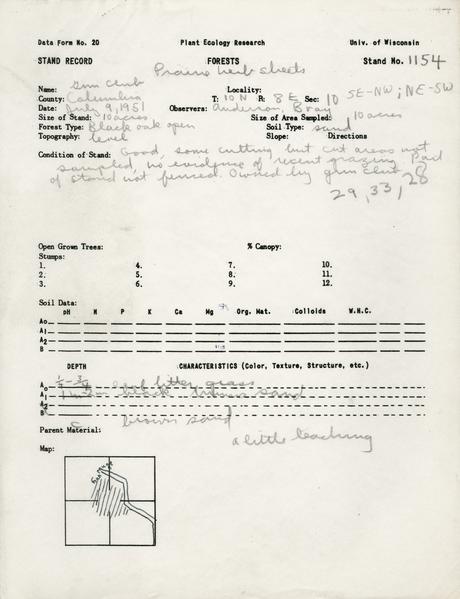 Data Form No. 20 Plant Ecology Research Univ. of Wisconsin
STAND RECORD FORESTS Stand No. 1154
Prairie herb sheets
Name: Gun Club Locality:
County: Columbia T: 10 N R: 8 E Sec: 10 SE-NW; NE-SW
Date: July 9, 1951 Observers: Anderson, Bray
Size of Stand: 40 acres Size of Area Sampled: 10 acres
Forest Type: Black oak open Soil Type: sand
Topography: level Slope: Directions
Condition of Stand: Good, some cutting but cut areas not
sampled, no evidence of recent grazing. Part
of stand not fenced. Owned by gun club.
29, 33, 28
Open Grown Trees: % Canopy:
Stumps:
1. 4. 7. 10.
2. 5. 8. 11.
3. 6. 9. 12.
Soil Data:
pH N P K Ca Mg Org. Mat. Colloids W.H.C.
Ao
A1
A2
B
DEPTH CHARACTERISTICS (Color, Texture, Structure, etc.)
Ao oak litter, grass
A1 black brown sand
A2
B
C brown sand
Parent Material:
a little leaching
Map: